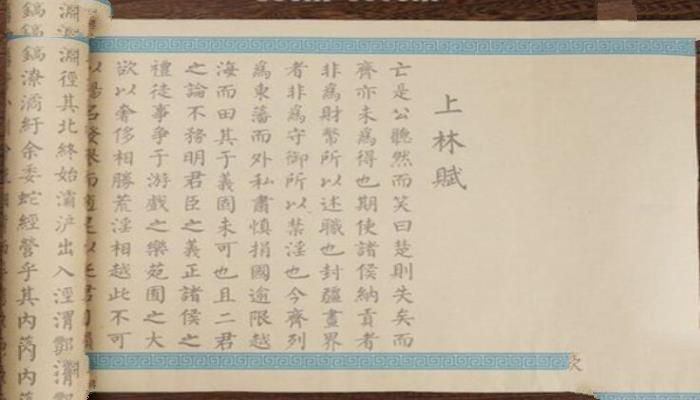 上林賦
亡是公聽然而笑曰楚則失矣而
齊亦未爲得也期使諸侯納貢者
非爲財幣所以述職也封疆畫界
者非爲守御所以禁淫也今齊列
爲東藩而外私肅慎捐國逾限越
海而田其于義固未可也且二君
之論不務明君臣之義正諸侯之
禮徒事爭于游戲之樂苑囿之大
欲以奢侈相勝荒淫相越此不可
徑其北終始灞沪出入涇渭酆
鎬鎬潦潏紆余委蛇經營乎其內